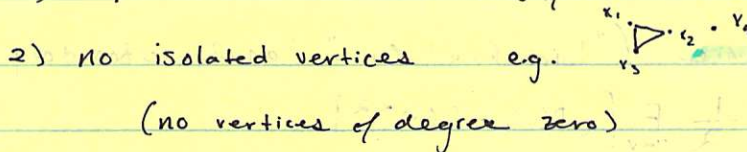 2) no isolated vertices e.g. x₁ x₂ x₃
(no vertices of degree zero)